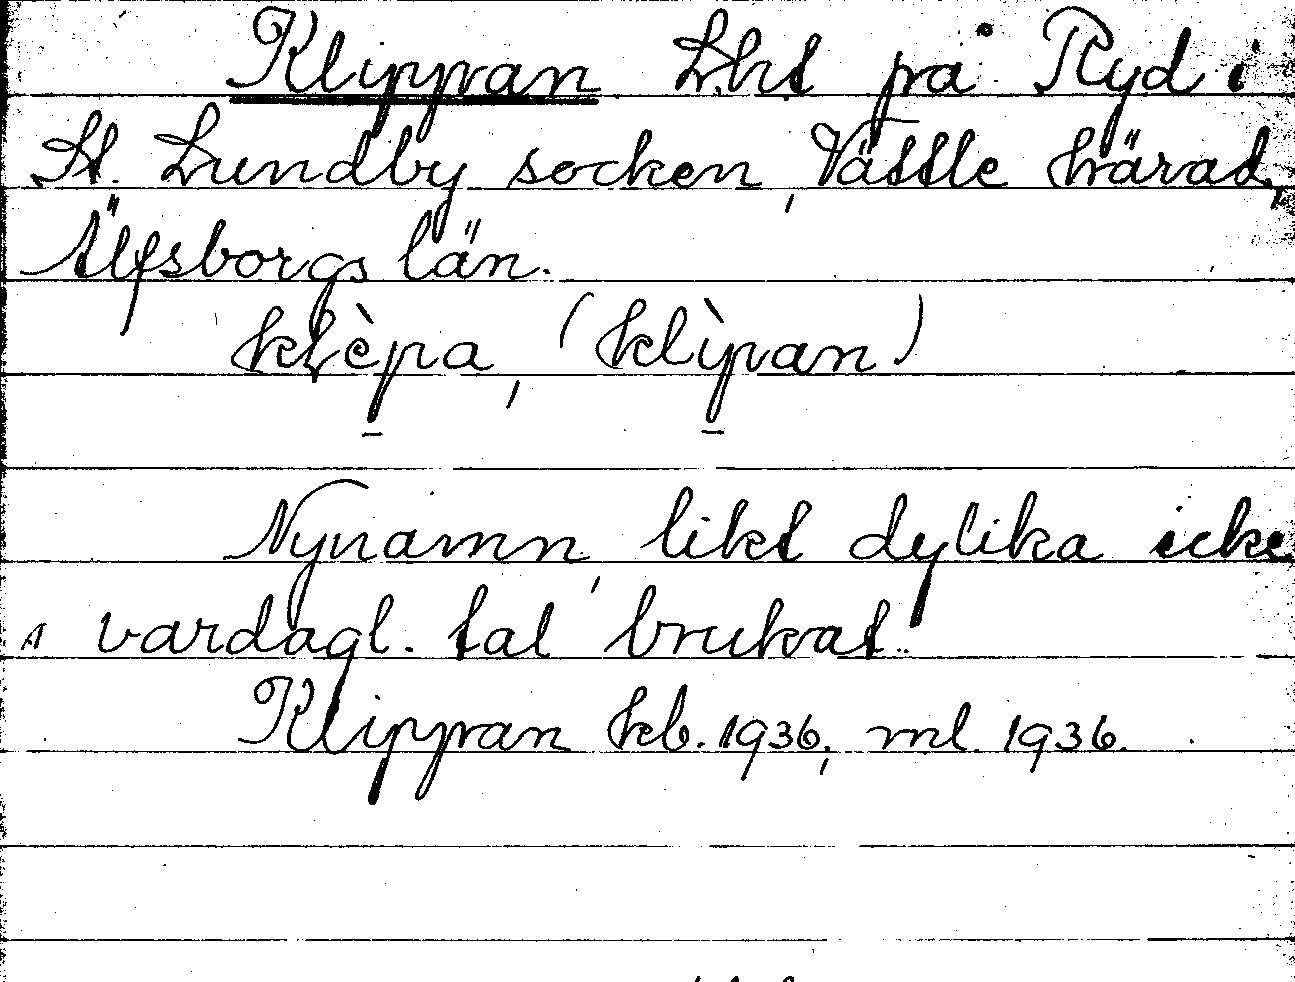 Klippan Lht på Ryd i
St. Lundby socken, Vättle härad,
Älfsborgs län.
klèpa, (klìpan)
Nynamn, likt dylika icke
i vardagl. tal brukat.
Klippan kb. 1936, ml. 1936.